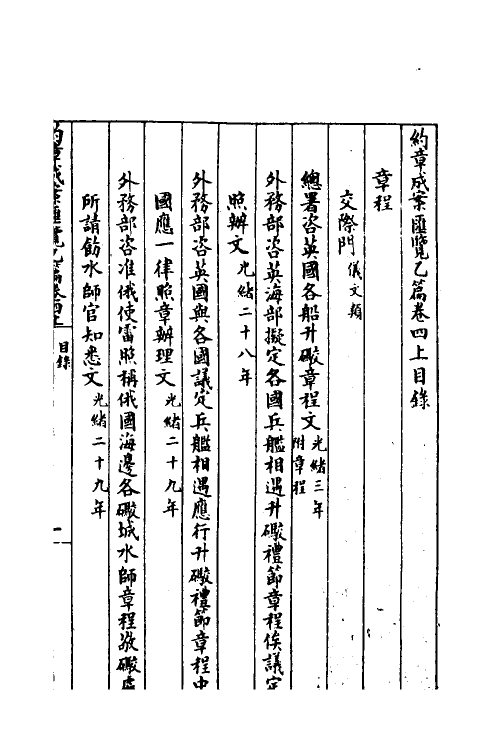 約章成案匯覽乙篇卷四上目錄
章程
交際門儀文類
總署咨英國各船升礮章程文光緒三年附章程
外務部咨英海部擬定各國兵艦相遇升礮禮節章程俟議定
照辦文光緒二十八年
外務部咨英國與各國議定兵艦相遇應行升礮禮節章程中
國應一律照章辦理文光緒二十九年
外務部咨准俄使雷照稱俄國海邊各礮城水師章程放礮處
所請飭水師官知悉文光緒二十九年
約章成案匯覽乙篇卷四上
目錄
一